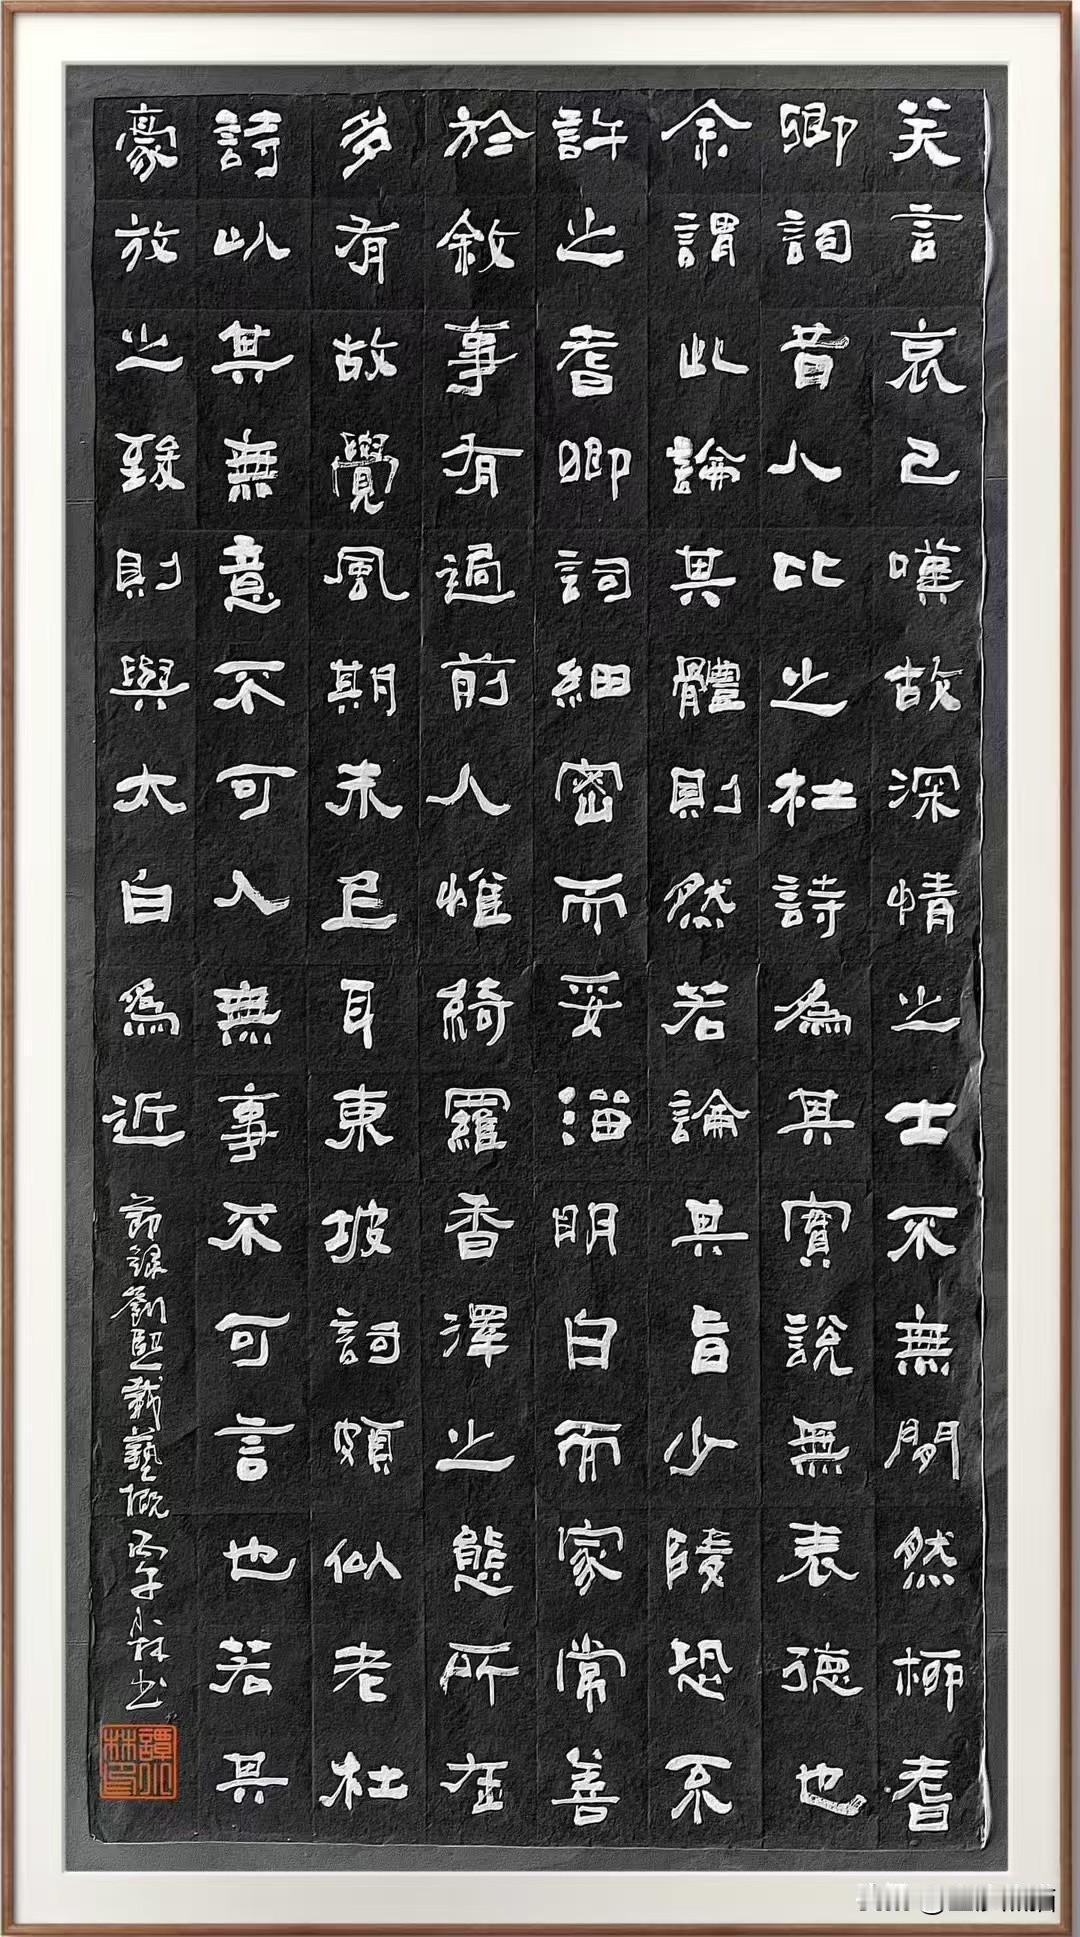 笑言哀己嘆故深情之士不無閒然柳耆
卿詞昔人比之杜詩為其實說無表德也
余謂此論其體則然若論其旨少陵恐不
許之耆卿詞細密而妥溜明白而家常善
於敘事有過前人惟綺羅香澤之態所在
多有故覺風期未已耳東坡詞頗似老杜
詩以其無意不可入無事不可言也若其
豪放之致則與太白為近
節錄劉熙載藝概 丙午小林書
譚小林印